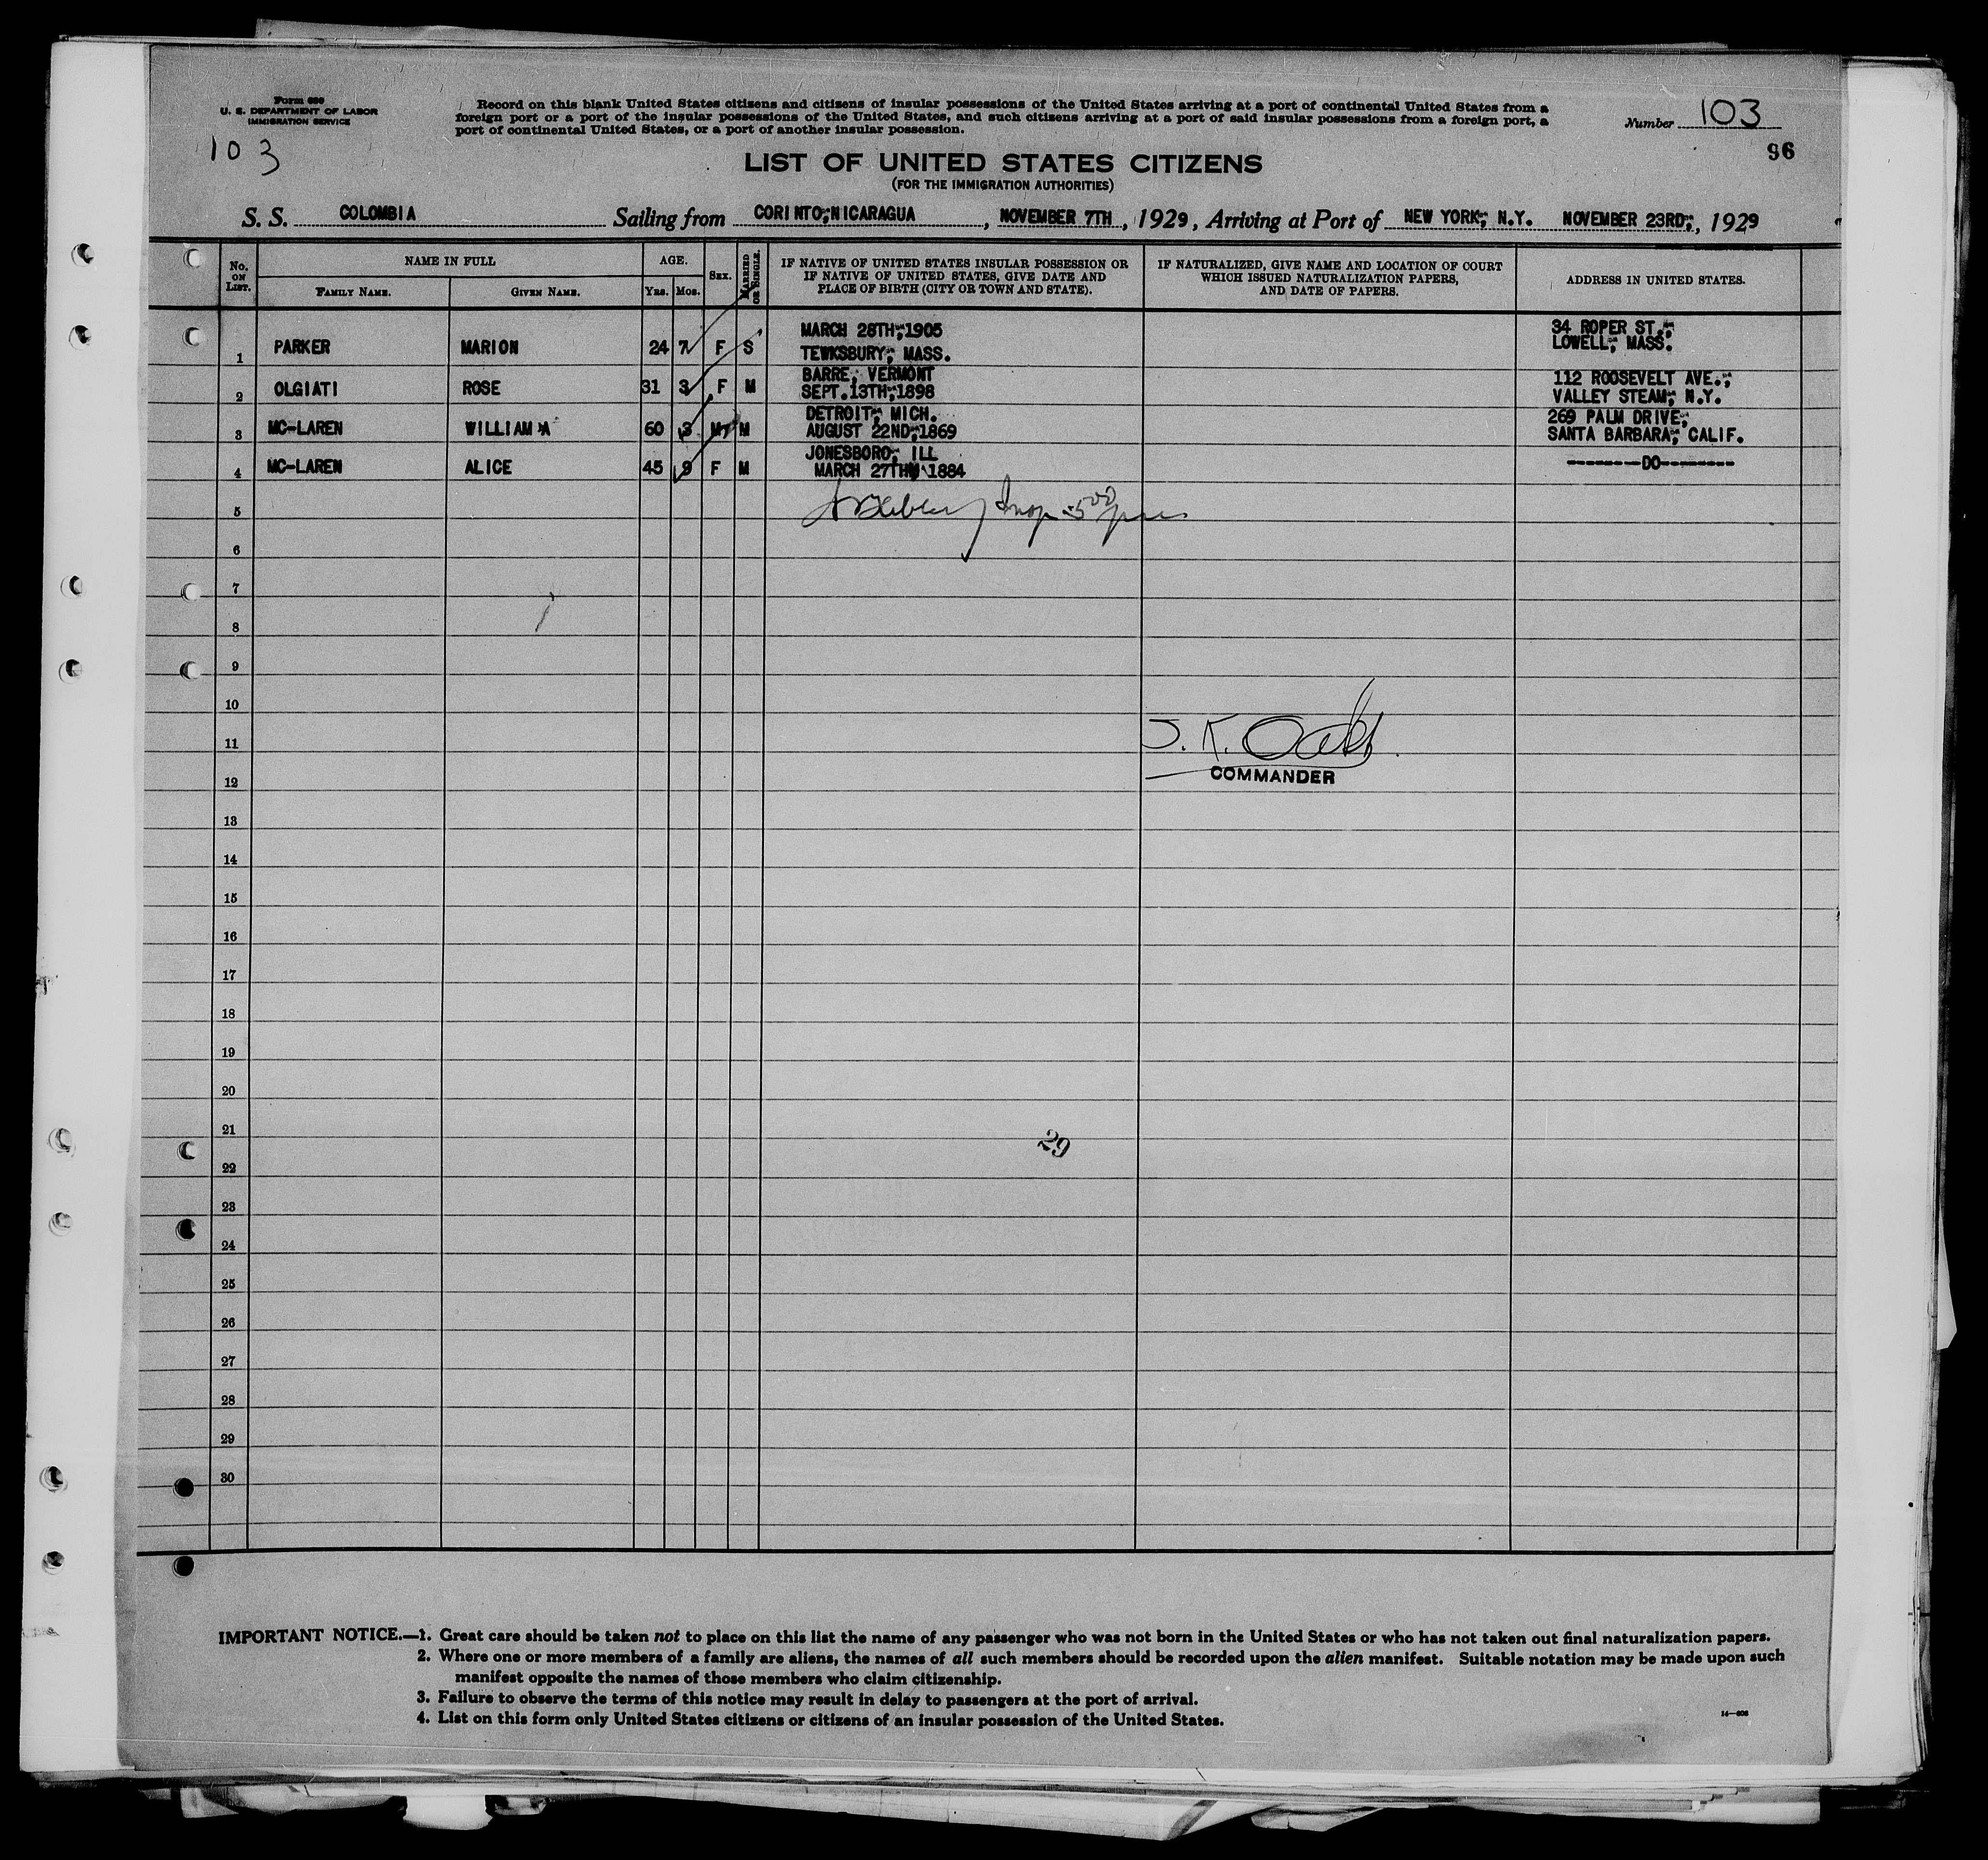 Form 630
U. S. DEPARTMENT OF LABOR
IMMIGRATION SERVICE
Record on this blank United States citizens and citizens of insular possessions of the United States arriving at a port of continental United States from a
foreign port or a port of the insular possessions of the United States, and such citizens arriving at a port of said insular possessions from a foreign port, a
port of continental United States, or a port of another insular possession.
Number 103
103
96
LIST OF UNITED STATES CITIZENS
(FOR THE IMMIGRATION AUTHORITIES)
S. S. COLOMBIA Sailing from CORINTO;NICARAGUA, NOVEMBER 7TH, 1929, Arriving at Port of NEW YORK; N.Y. NOVEMBER 23RD;, 1929
No. ON LIST.
NAME IN FULL
FAMILY NAME.
GIVEN NAME.
AGE.
YRS. MOS.
SEX.
MARRIED OR SINGLE.
IF NATIVE OF UNITED STATES INSULAR POSSESSION OR
IF NATIVE OF UNITED STATES, GIVE DATE AND
PLACE OF BIRTH (CITY OR TOWN AND STATE).
IF NATURALIZED, GIVE NAME AND LOCATION OF COURT
WHICH ISSUED NATURALIZATION PAPERS,
AND DATE OF PAPERS.
ADDRESS IN UNITED STATES.
MARCH 28TH;1905 34 ROPER ST.;
1 PARKER MARION 24 7 F S TEWKSBURY; MASS. LOWELL; MASS.
BARRE; VERMONT 112 ROOSEVELT AVE.;
2 OLGIATI ROSE 31 3 F M SEPT.13TH;1898 VALLEY STEAM; N.Y.
DETROIT; MICH. 269 PALM DRIVE;
3 MC-LAREN WILLIAM A 60 3 M M AUGUST 22ND;1869 SANTA BARBARA; CALIF.
JONESBORO; ILL
4 MC-LAREN ALICE 45 9 F M MARCH 27TH 1884 --------DO--------
5
6
7
8
9
10
11
J. K. Oaks
COMMANDER
12
13
14
15
16
17
18
19
20
21
29
22
23
24
25
26
27
28
29
30
IMPORTANT NOTICE.—1. Great care should be taken not to place on this list the name of any passenger who was not born in the United States or who has not taken out final naturalization papers.
2. Where one or more members of a family are aliens, the names of all such members should be recorded upon the alien manifest. Suitable notation may be made upon such
manifest opposite the names of those members who claim citizenship.
3. Failure to observe the terms of this notice may result in delay to passengers at the port of arrival.
4. List on this form only United States citizens or citizens of an insular possession of the United States.